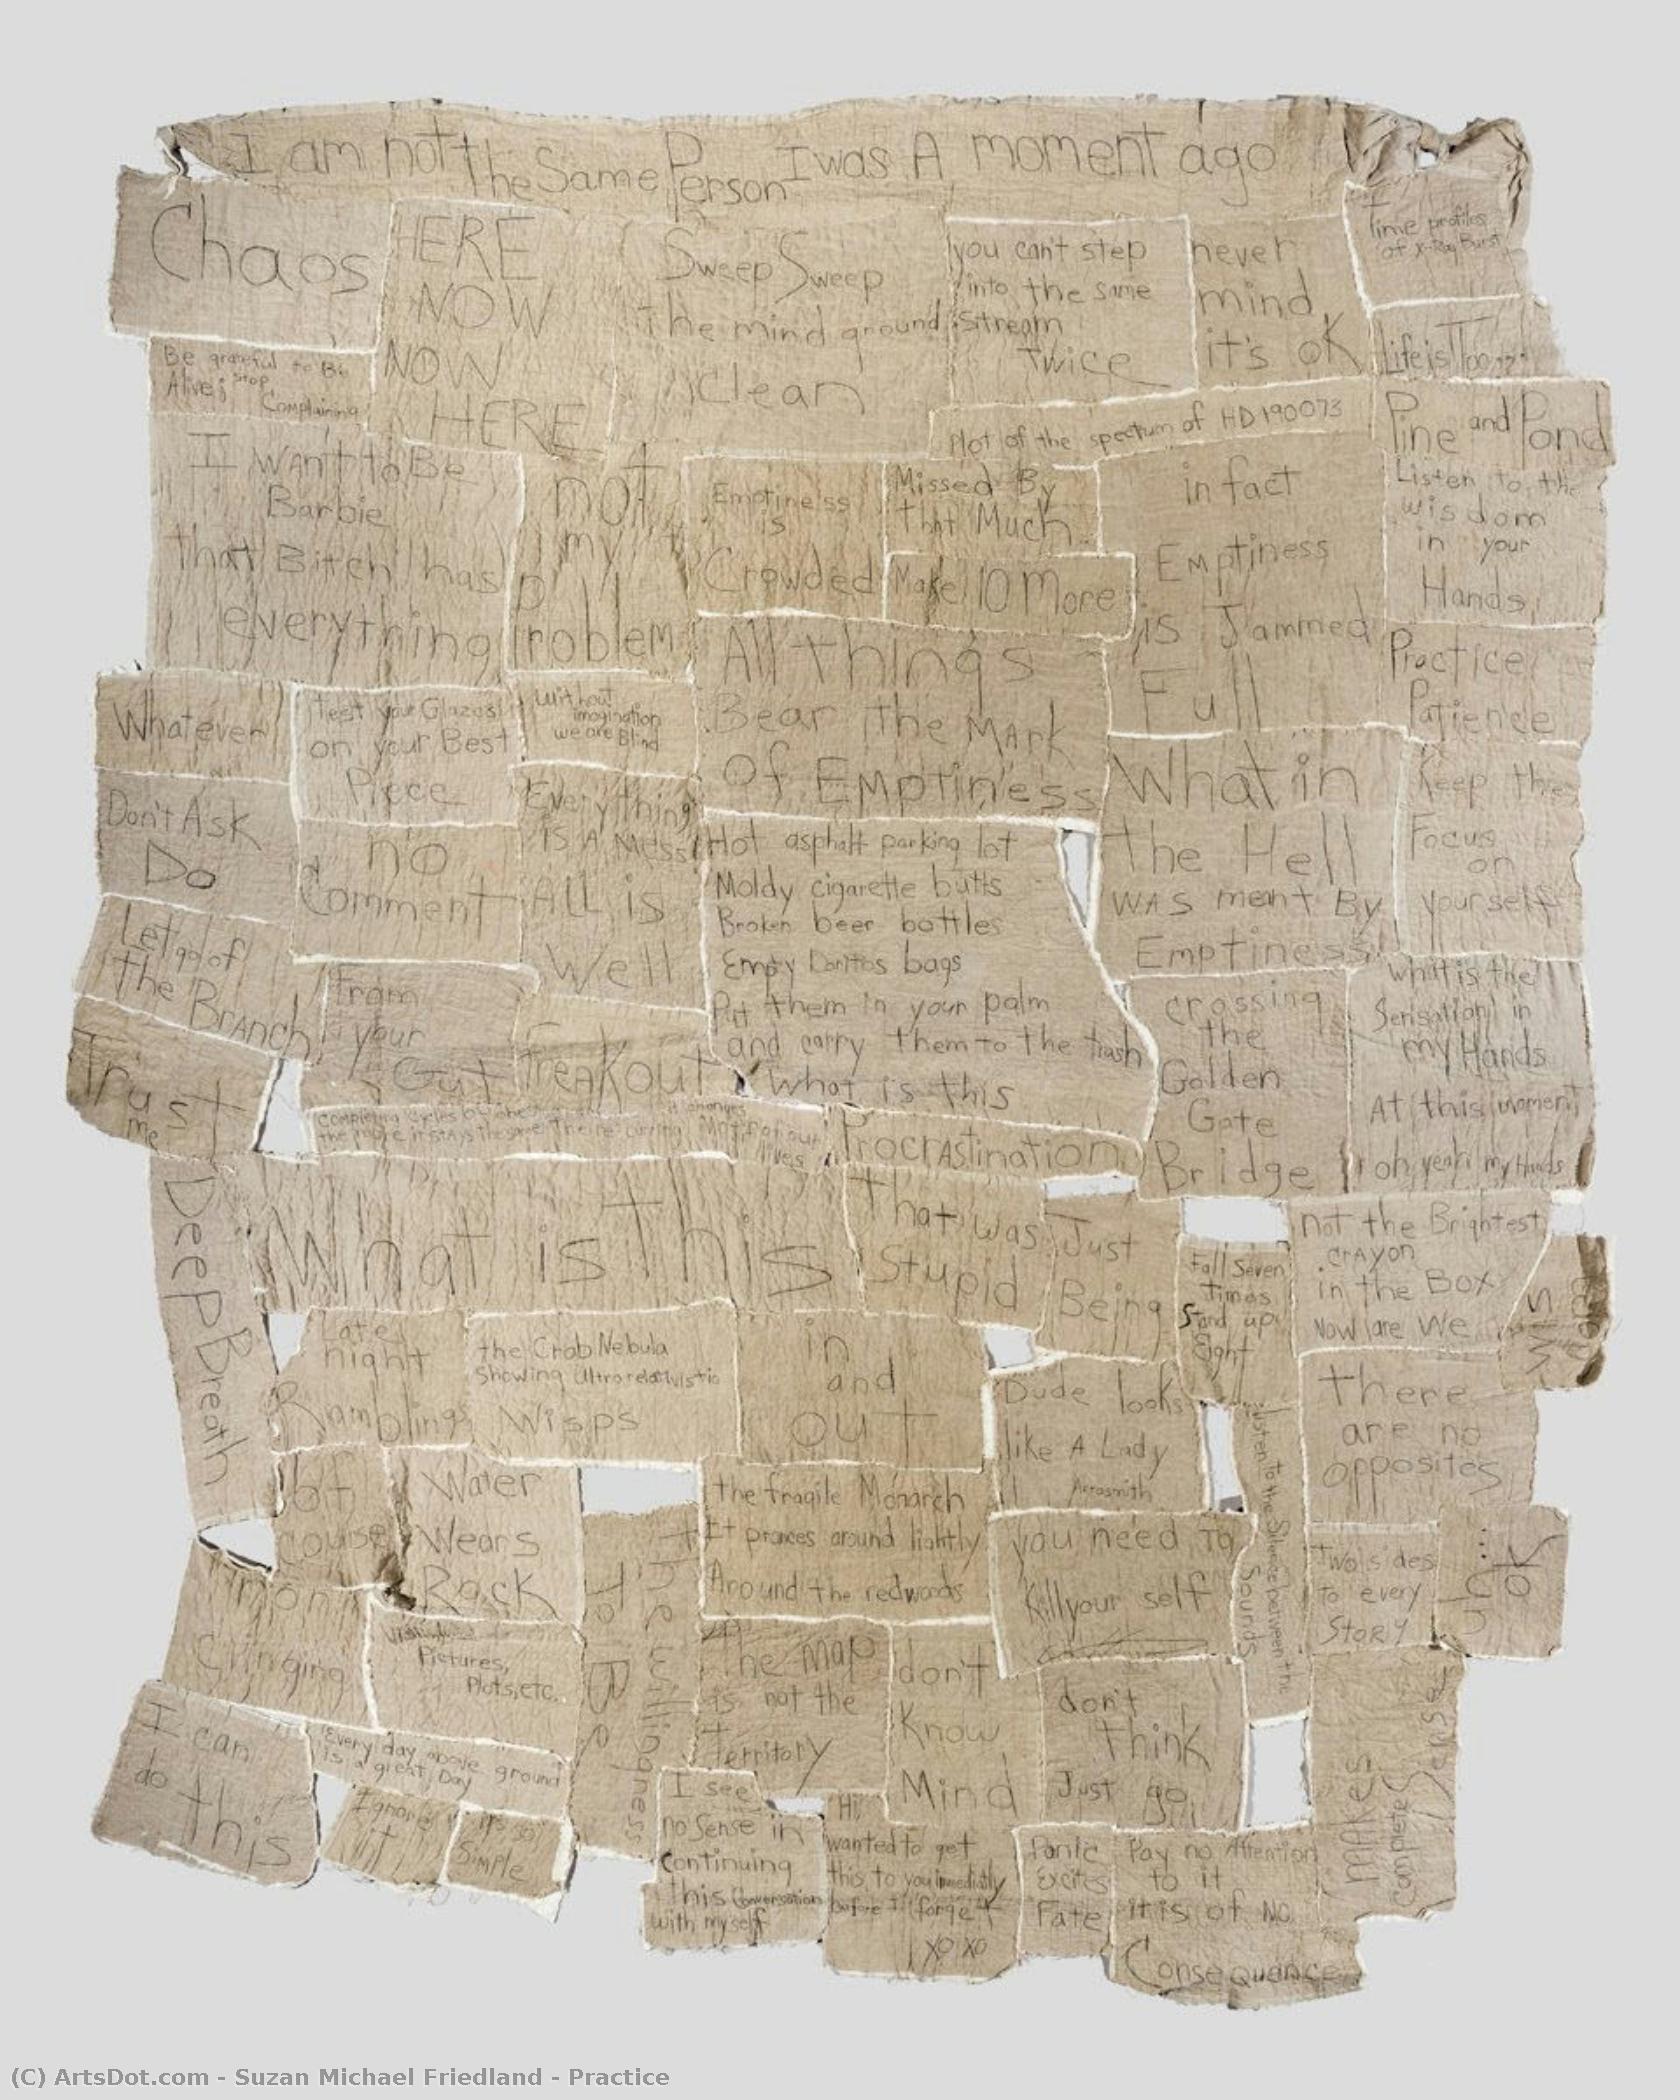 I am not the Same Person I was A moment ago
Chaos
HERE
NOW
NOW
HERE
Sweep Sweep
the mind ground
clean
you can't step
into the same
Stream
Twice
never
mind,
it's OK
Time profiles
of X-Ray Burst
Life is
Be grateful to Be
Alive; Stop
Complaining
Plot of the spectrum of HD 190073
Pine and Pond
I WAnt to Be
Barbie
that Bitch has
everything
not
my
problem
Emptiness
is
Crowded
Missed By
that Much
Make 10 More
in fact
Emptiness
is Jammed
Full
Listen to the
wisdom
in your
Hands
Practice
Patience
All things
Bear the MArk
Of EMptiness
Whatever
Test your Glazes
on your Best
Piece
Without
imagination
we are Blind
Everything
is A Mess
ALL is
Well
Don't Ask
Do
no
Comment
Hot asphalt parking lot
Moldy cigarette butts
Broken beer bottles
Empty Doritos bags
Put them in your palm
and carry them to the trash
What is this
What in
the Hell
WAS meant By
Emptiness
Keep the
Focus
on
yourself
Let go of
the BrAnch
From
your
Gut
freAkout
crossing
the
Golden
Gate
Bridge
What is the
Sensation in
my Hands
At this moment
oh yeah my Hands
Trust
me
Completing cycles of
the more it stays the same The recurring Motif of our
lives
ProcrAstination
DeeP Breath
What is This
That was
Stupid
Just
Being
Fall Seven
Times
Stand up
Eight
not the Brightest
crAyon
in the Box
Now are We
Late
night
Rambling
the Crab Nebula
Showing Ultrarelativistic
Wisps
in
and
out
Dude looks
like A Lady
Aerosmith
there
are no
opposites
of
course
Water
Wears
Rock
the fragile Monarch
It prances around lightly
Around the redwoods
you need To
Kill your self
Listen to the Silence between the
Sounds
Two sides
To every
StorY
OK
Clinging
Pictures,
Plots, etc.
The willingness
To Be
The Map
is not the
territory
don't
Know
Mind
don't
Think
Just go
MAKes
Complete Sense
I can
do this
Every day above ground
is a great Day
Ignore
it
it's so
Simple
I see
no Sense in
Continuing
this Conversation
with myself
Hi
wanted to get
this to you immediately
before I forget
XO XO
Panic
Excites
Fate
Pay no Attention
to it
it is of No
Consequence
(C) ArtsDot.com - Suzan Michael Friedland - Practice